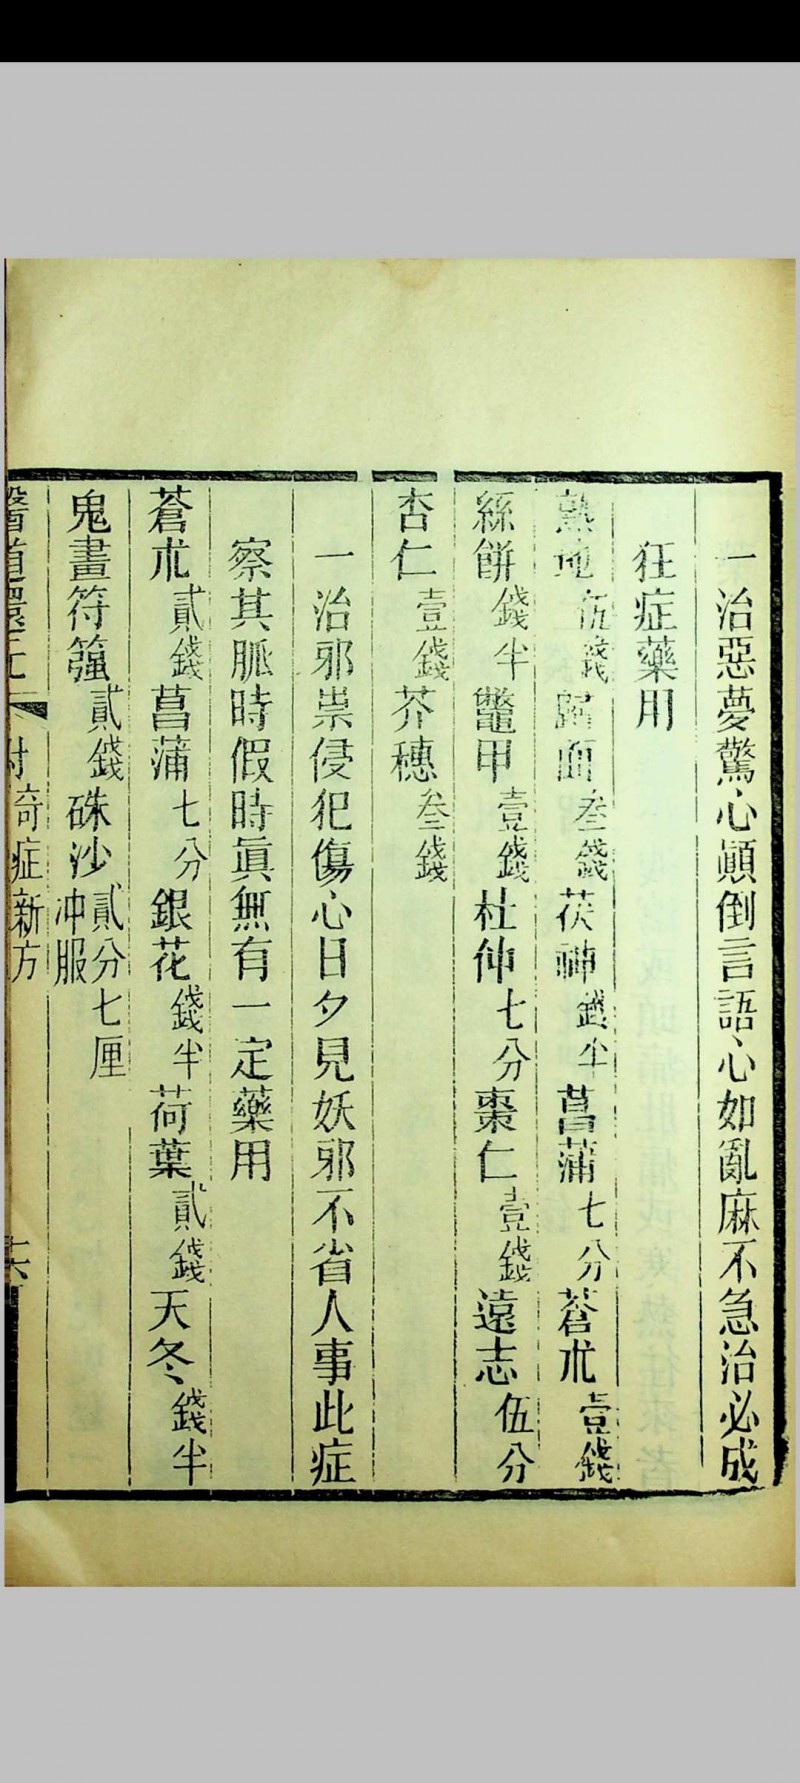 一治惡夢驚心顚倒言語心如亂麻不急治必成
狂症藥用
熟地伍錢 面叁錢茯神錢半菖蒲七分蒼朮壹錢
絲餅錢半鼈甲壹錢杜仲七分棗仁壹錢遠志伍分
杏仁壹錢芥穗叁錢
一治邪祟侵犯傷心日夕見妖邪不省人事此症
察其脈時假時眞無有一定藥用
蒼朮貳錢菖蒲七分銀花錢半荷葉貳錢天冬錢半
鬼畫符 貳錢硃沙貳分七厘冲服
醫道還元 附奇症新方 十六